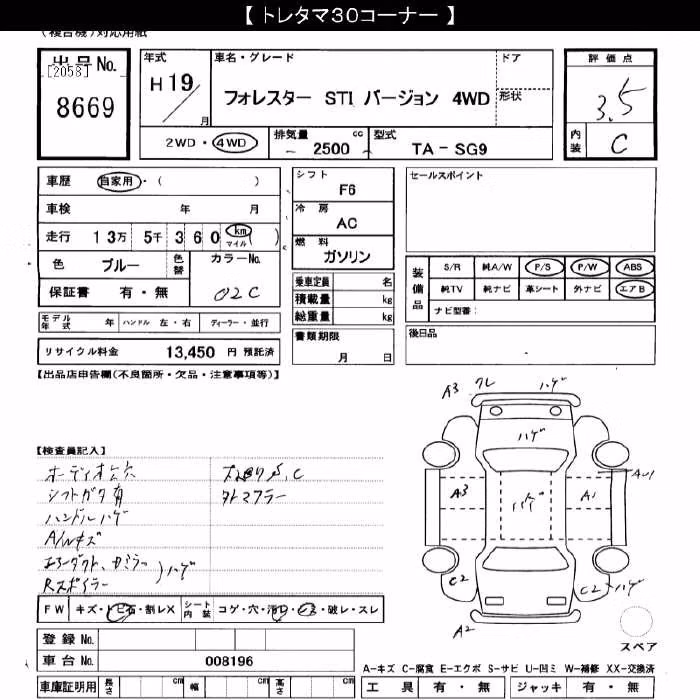 【 トレタマ30コーナー 】
(複合機)対応用紙
出品No.
[2058]
8669
年式
H19/
月
車名・グレード
フォレスター STI バージョン 4WD
ドア
形状
2WD・4WD
排気量 cc
2500
型式
TA-SG9
評価点
3.5
内装
C
車歴 自家用・( )
車検 年 月
走行 13万 5千 360 km マイル ( )
色 ブルー 色替 カラーNo.
保証書 有・無 02C
モデル年式 年 ハンドル 左・右 ディーラー・並行
リサイクル料金 13,450 円 預託済
シフト
F6
冷房
AC
燃料
ガソリン
乗車定員 名
積載量 kg
総重量 kg
書類期限
月 日
セールスポイント
装備品
S/R 純A/W P/S P/W ABS
純TV 純ナビ 革シート 外ナビ エアB
ナビ型番:
後日品
【出品店申告欄(不良箇所・欠品・注意事項等)】
【検査員記入】
オーディオ穴
シフトガタ有
ハンドルハゲ
A/Wキズ
Rスポイラー
ハゲ
外マフラー
A3
ハゲ
ハゲ
A3
ハゲ
A1
C2
C2
ハゲ
A2
スペア
FW キズ・トビ石・割レX シート内装 コゲ・穴・汚レ・スレ・破レ・スレ
登録No.
車台No. 008196
車庫証明用 長さ cm 幅 cm 高さ cm
A-キズ C-腐食 E-エクボ S-サビ U-凹ミ W-補修 XX-交換済
工具 有・無 ジャッキ 有・無